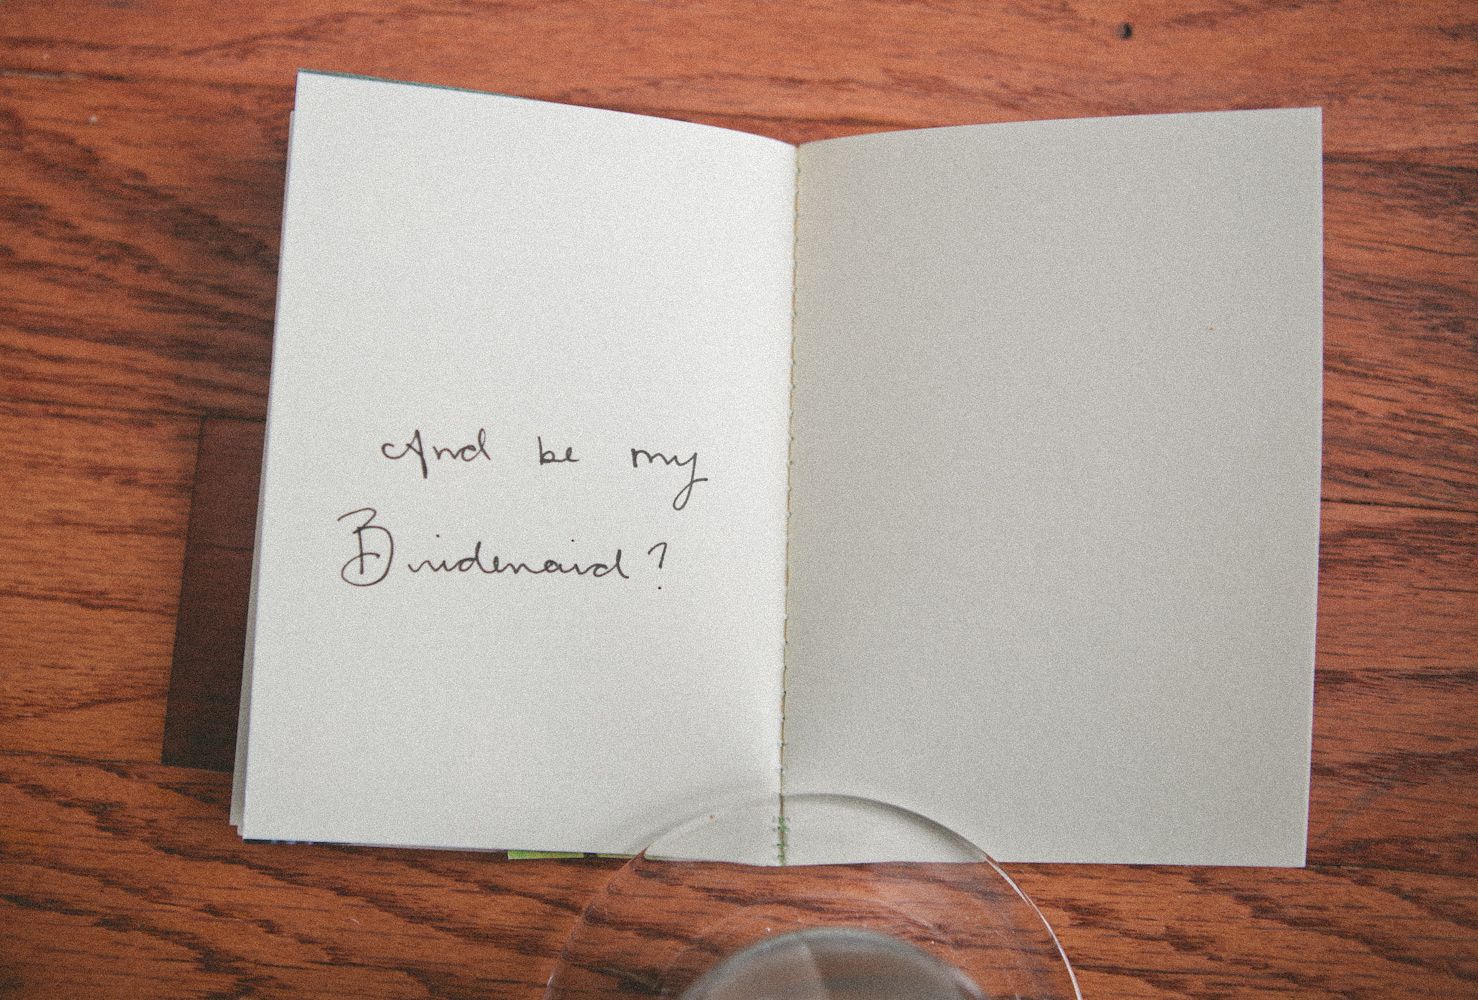 And be my
Bridemaid?